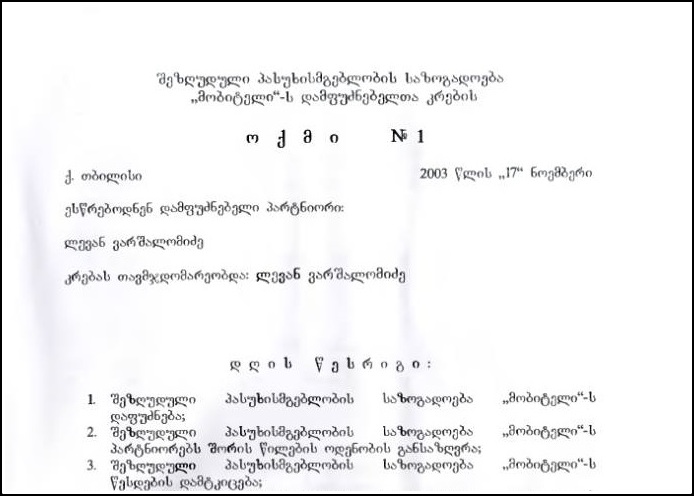 შეზღუდული პასუხისმგებლობის საზოგადოება
„მობიტელი“-ს დამფუძნებელთა კრების
ო ქ მ ი №1
ქ. თბილისი 2003 წლის „17“ ნოემბერი
ესწრებოდნენ დამფუძნებელი პარტნიორი:
ლევან ვარშალომიძე
კრებას თავმჯდომარეობდა: ლევან ვარშალომიძე
დ ღ ი ს წ ე ს რ ი გ ი :
1. შეზღუდული პასუხისმგებლობის საზოგადოება „მობიტელი“-ს
დაფუძნება;
2. შეზღუდული პასუხისმგებლობის საზოგადოება „მობიტელი“-ს
პარტნიორებს შორის წილების ოდენობის განსაზღვრა;
3. შეზღუდული პასუხისმგებლობის საზოგადოება „მობიტელი“-ს
წესდების დამტკიცება;